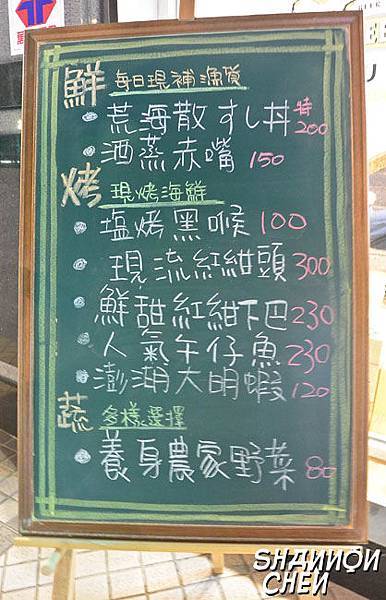 鮮 每日現補漁貨
荒海散すし丼 特200
酒蒸赤嘴 150
烤 現烤海鮮
塩烤黑喉 100
現流紅紺頭 300
鮮甜紅紺下巴 230
人氣午仔魚 230
澎湖大明蝦 120
蔬 多樣選擇
養身農家野菜 80
SHANNON
CHEN